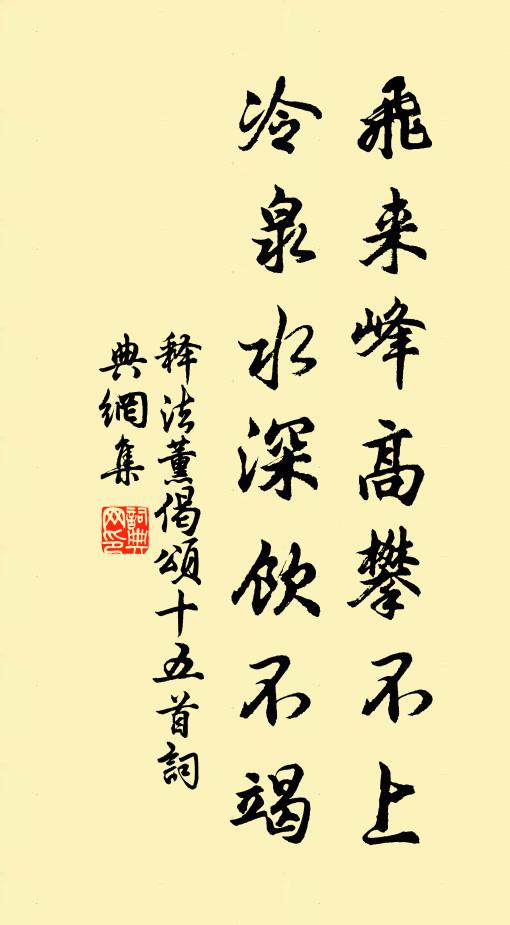 飛来峰高攀不上
冷泉水深飲不竭
释法薰偈頌十五首詞
典網集
詞典
网印